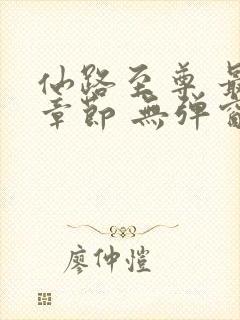 仙路至尊 最
章節 無弹窗
廖仲愷